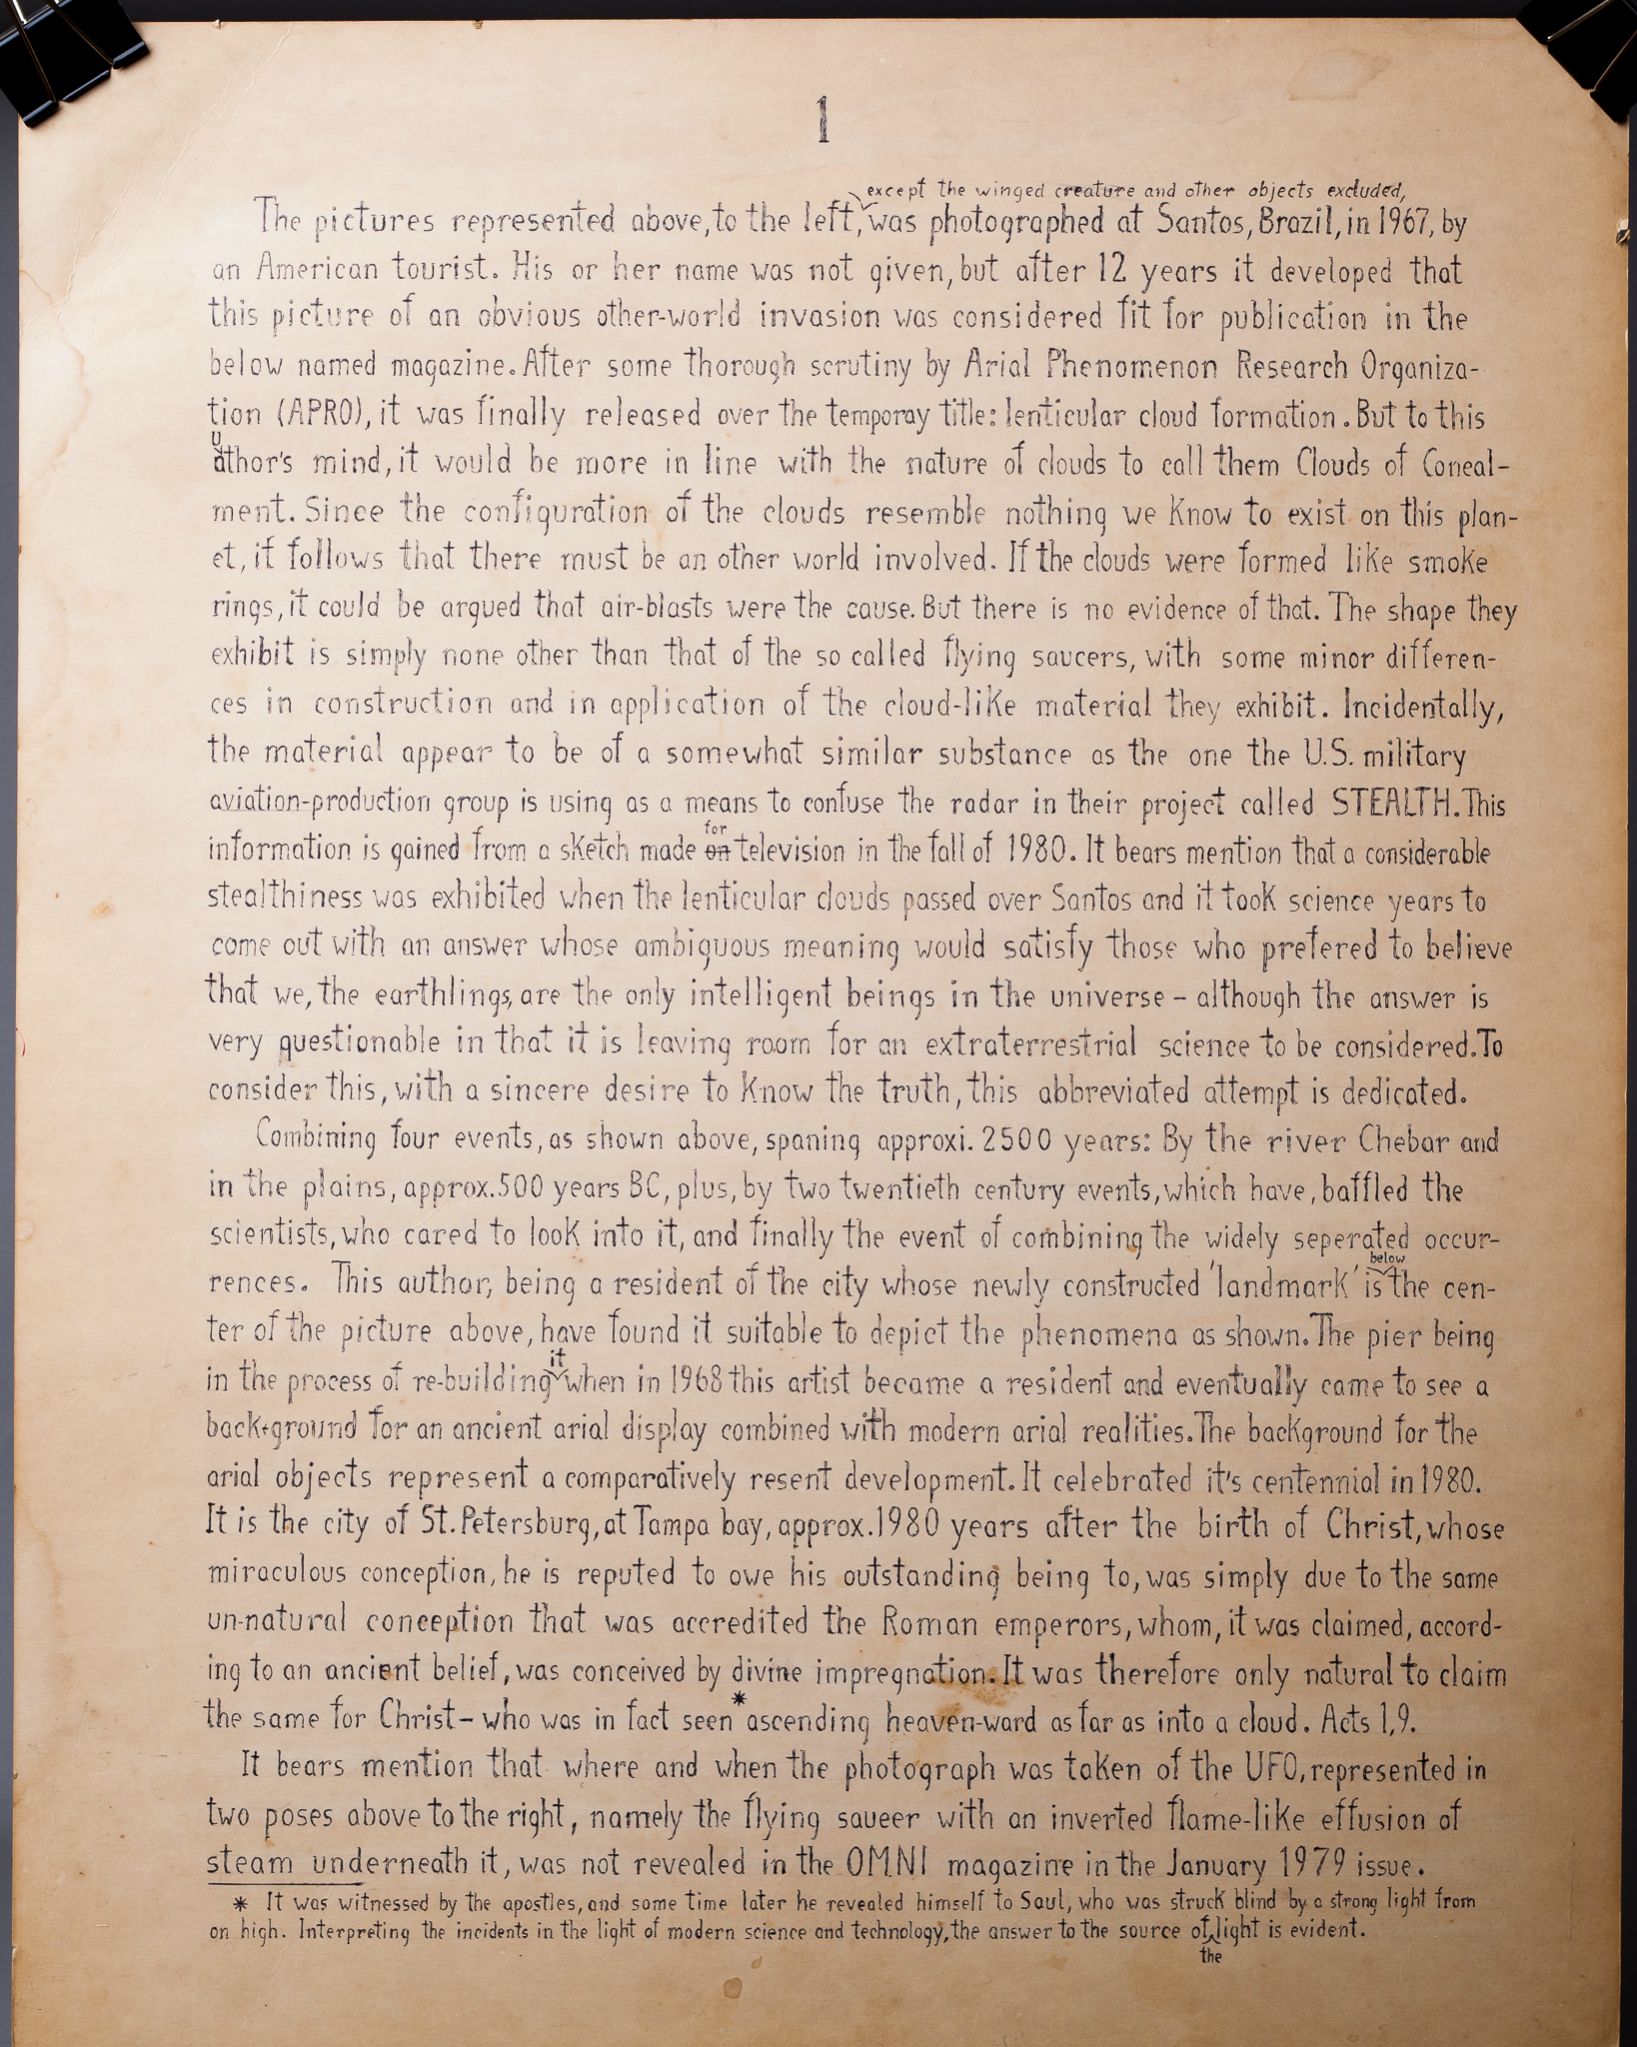 1
except the winged creature and other objects excluded,
The pictures represented above, to the left, was photographed at Santos, Brazil, in 1967, by
an American tourist. His or her name was not given, but after 12 years it developed that
this picture of an obvious other-world invasion was considered fit for publication in the
below named magazine. After some thorough scrutiny by Arial Phenomenon Research Organiza-
tion (APRO), it was finally released over the temporay title: lenticular cloud formation. But to this
author's mind, it would be more in line with the nature of clouds to call them Clouds of Coneal-
ment. Since the configuration of the clouds resemble nothing we know to exist on this plan-
et, it follows that there must be an other world involved. If the clouds were formed like smoke
rings, it could be argued that air-blasts were the cause. But there is no evidence of that. The shape they
exhibit is simply none other than that of the so called flying saucers, with some minor differen-
ces in construction and in application of the cloud-like material they exhibit. Incidentally,
the material appear to be of a somewhat similar substance as the one the U.S. military
aviation-production group is using as a means to confuse the radar in their project called STEALTH. This
information is gained from a sketch made on for television in the fall of 1980. It bears mention that a considerable
stealthiness was exhibited when the lenticular clouds passed over Santos and it took science years to
come out with an answer whose ambiguous meaning would satisfy those who prefered to believe
that we, the earthlings, are the only intelligent beings in the universe – although the answer is
very questionable in that it is leaving room for an extraterrestrial science to be considered. To
consider this, with a sincere desire to know the truth, this abbreviated attempt is dedicated.
Combining four events, as shown above, spaning approxi. 2500 years: By the river Chebar and
in the plains, approx. 500 years BC, plus, by two twentieth century events, which have, baffled the
scientists, who cared to look into it, and finally the event of combining the widely seperated occur-
rences. This author, being a resident of the city whose newly constructed 'landmark' is below the cen-
ter of the picture above, have found it suitable to depict the phenomena as shown. The pier being
in the process of re-building it when in 1968 this artist became a resident and eventually came to see a
back-ground for an ancient arial display combined with modern arial realities. The background for the
arial objects represent a comparatively resent development. It celebrated it's centennial in 1980.
It is the city of St. Petersburg, at Tampa bay, approx. 1980 years after the birth of Christ, whose
miraculous conception, he is reputed to owe his outstanding being to, was simply due to the same
un-natural conception that was accredited the Roman emperors, whom, it was claimed, accord-
ing to an ancient belief, was conceived by divine impregnation. It was therefore only natural to claim
the same for Christ – who was in fact seen * ascending heaven-ward as far as into a cloud. Acts 1,9.
It bears mention that where and when the photograph was taken of the UFO, represented in
two poses above to the right, namely the flying saucer with an inverted flame-like effusion of
steam underneath it, was not revealed in the OMNI magazine in the January 1979 issue.
* It was witnessed by the apostles, and some time later he revealed himself to Saul, who was struck blind by a strong light from
on high. Interpreting the incidents in the light of modern science and technology, the answer to the source of the light is evident.